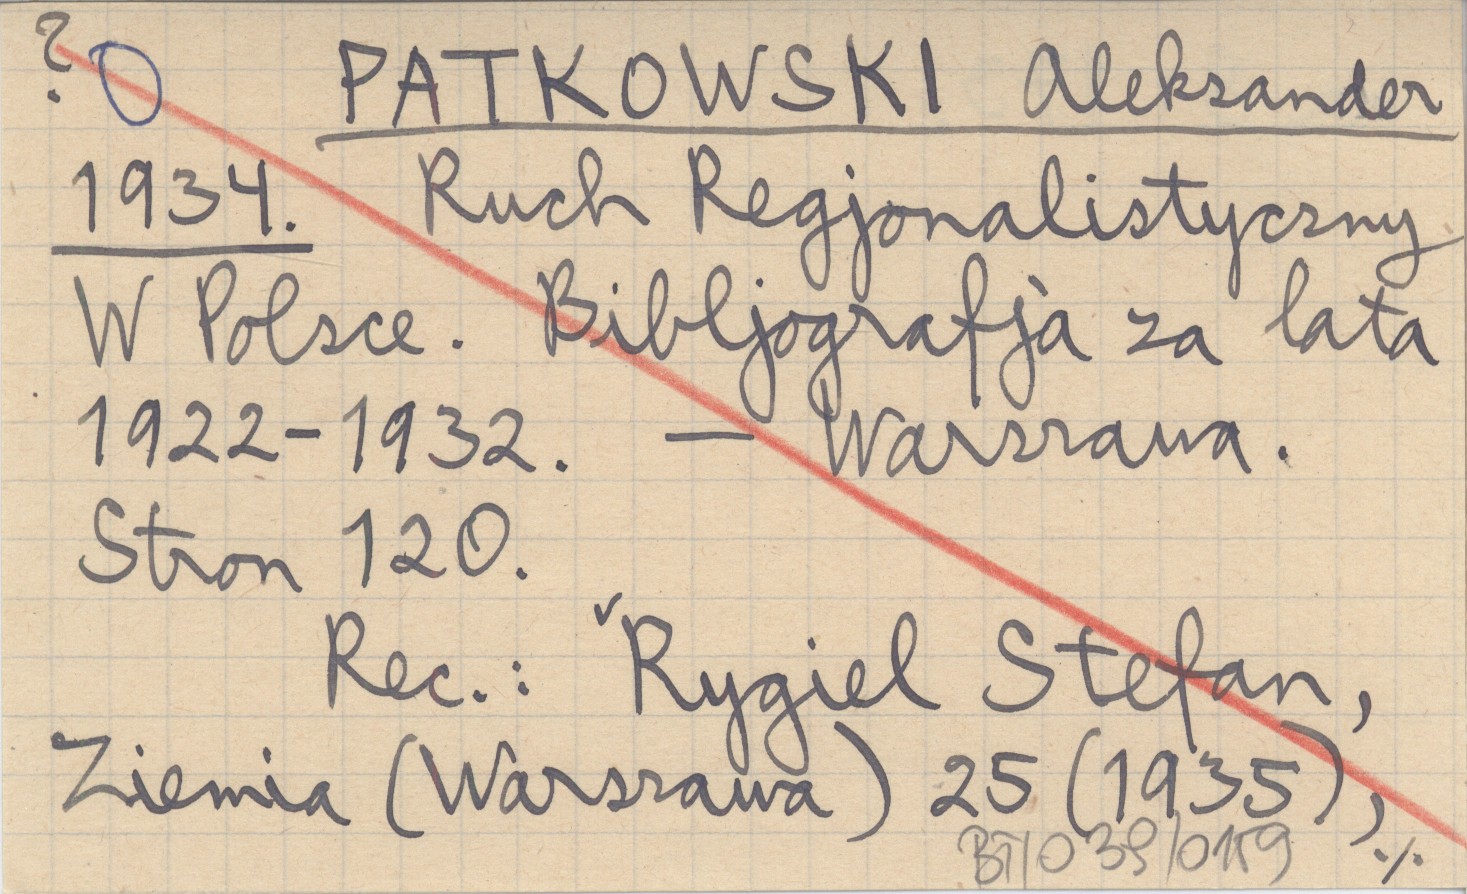 ? O PATKOWSKI Aleksander
1934. Ruch Regjonalistyczny
W Polsce. Bibljografja za lata
1922-1932. — Warszawa.
Stron 120.
Rec.: ˇRygiel Stefan,
Ziemia (Warszawa) 25 (1935),
./.